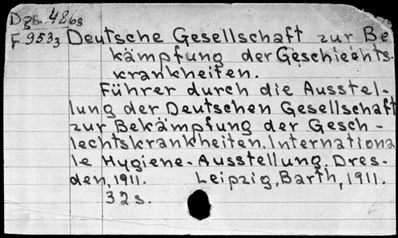 Dgh. 4868
F 9533 Deutsche Gesellschaft zur Be
kämpfung der Geschlechts-
krankheiten.
Führer durch die Ausstel-
lung der Deutschen Gesellschaft
zur Bekämpfung der Gesch-
lechtskrankheiten. Internationa
le Hygiene-Ausstellung, Dres-
den, 1911. Leipzig, Barth, 1911.
32 s.